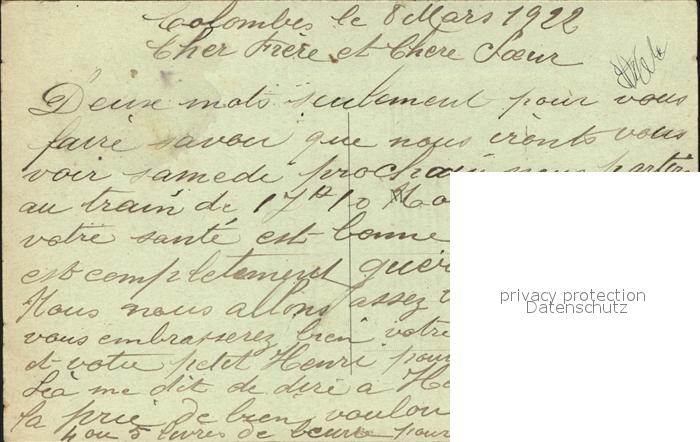 Colombes le 8 Mars 1922
Cher Frère et Chere Sœur
Deux mots seulement pour vous
faire savoir que nous irons vous
voir samedi prochain nous partir
au train de 17h 10
votre santé est bonne
est completement guéri
Nous nous allons assez
vous embrasserez bien votre
et votre petit Henri pour
Léa me dit de dire a He
la prie de bien voulou
4 ou 5 livres de beurre pour
privacy protection
Datenschutz